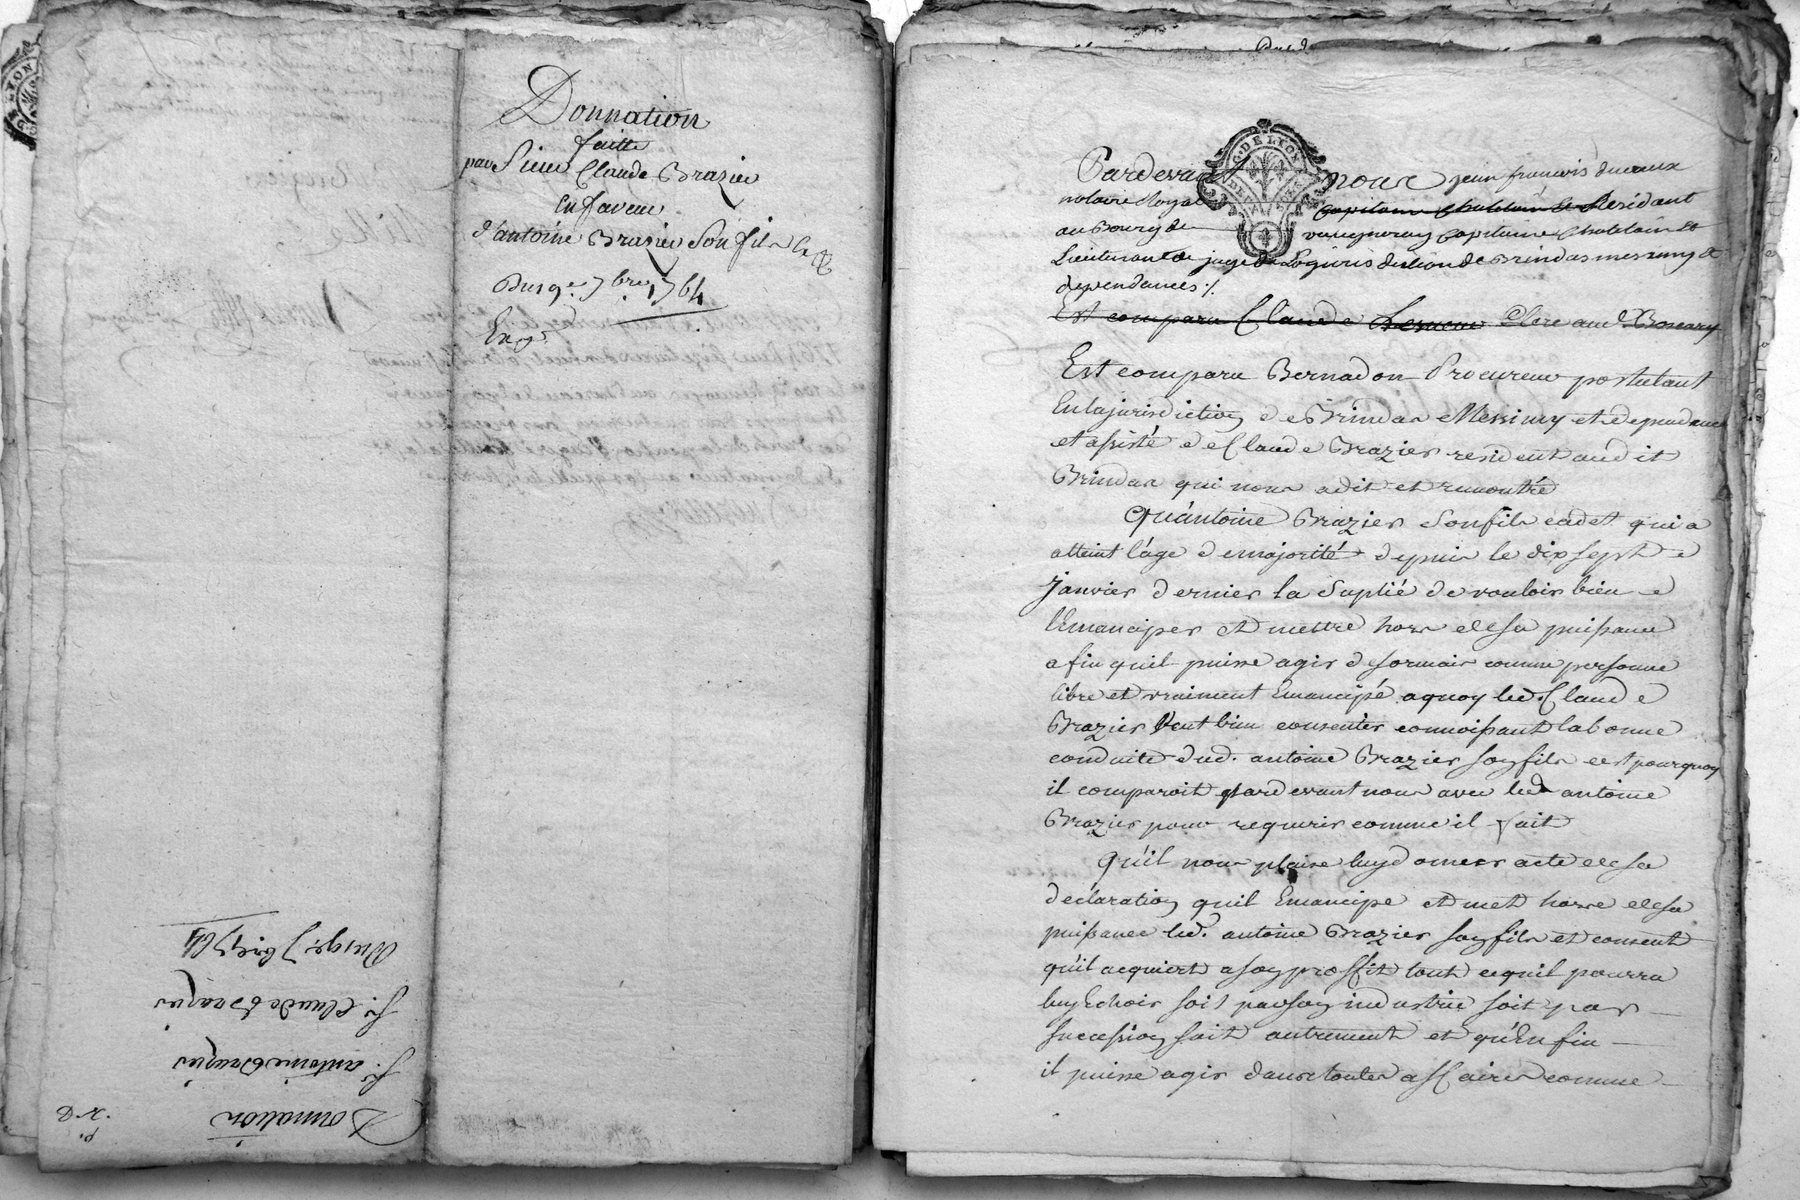 Donnation
faitte
par Sieur Claude Brazier
En faveur
d'antoine Brazier Son fils
Du 19e 7bre 1764
Donnation
Sr antoine Brazier
Sr Claude Brazier
Du 19e 7bre 1764
G. DE LYON
Pardevant nous jean francois ducreux
notaire Royal capitaine chatelain et Residant
au Bourg de vaugneray capitaine chatelain et
Lieutenant de juge de Brindas messimy et
dependances ./.
Est comparu Claude Clerc aud.
Est comparu Bernadon Procureur postulant
En la jurisdiction de Brindas Messimy et dependances
et assisté de Claude Brazier resident audit
Brindas qui nous a dit et remontré
Qu'antoine Brazier Son fils cadet qui a
atteint l'age de majorité depuis le dix sept
janvier dernier la Suplié de vouloir bien
l'Emanciper et mettre hors de sa puissance
afin quil puisse agir desormais comme personne
libre et vraiment Emancipé a quoy led. Claude
Brazier Veut bien consentir connoissant la bonne
conduite dud. antoine Brazier soy fils cest pourquoy
il comparoit pardevant nous avec led. antoine
Brazier pour requerir comme il fait
Qu'il nous plaise luy donner acte de sa
declaration quil Emancipe et met hors de sa
puissance led. antoine Brazier soy fils et consent
qu'il acquiert a soy proffit tout ce quil pourra
luy Echoir soit par soy industrie soit par
succession soit autrement et qu'En fin
il puisse agir dans toutes affaires comme